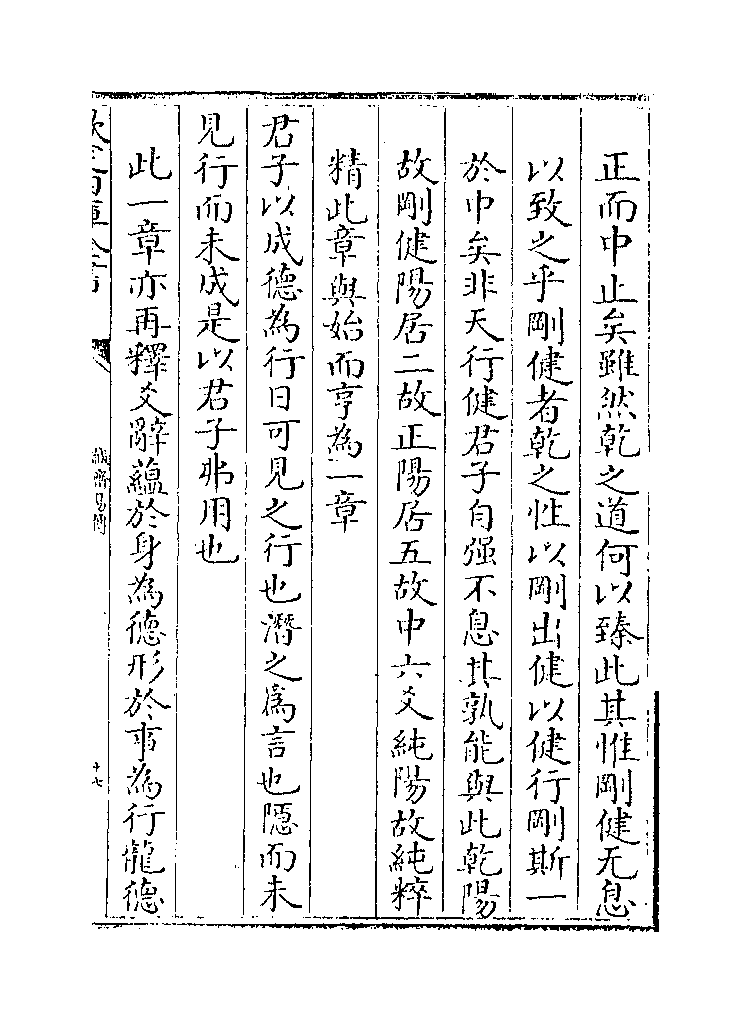 正而中止矣雖然乾之道何以臻此其惟剛健无息
以致之乎剛健者乾之性以剛出健以健行剛斯一
於中矣非天行健君子自强不息其孰能與此乾陽
故剛健陽居二故正陽居五故中六爻純陽故純粹
精此章與始而亨為一章
君子以成德為行日可見之行也潛之為言也隱而未
見行而未成是以君子弗用也
此一章亦再釋爻辭蘊於身為德形於事為行龍德
欽定四庫全書
誠齋易傳
十七